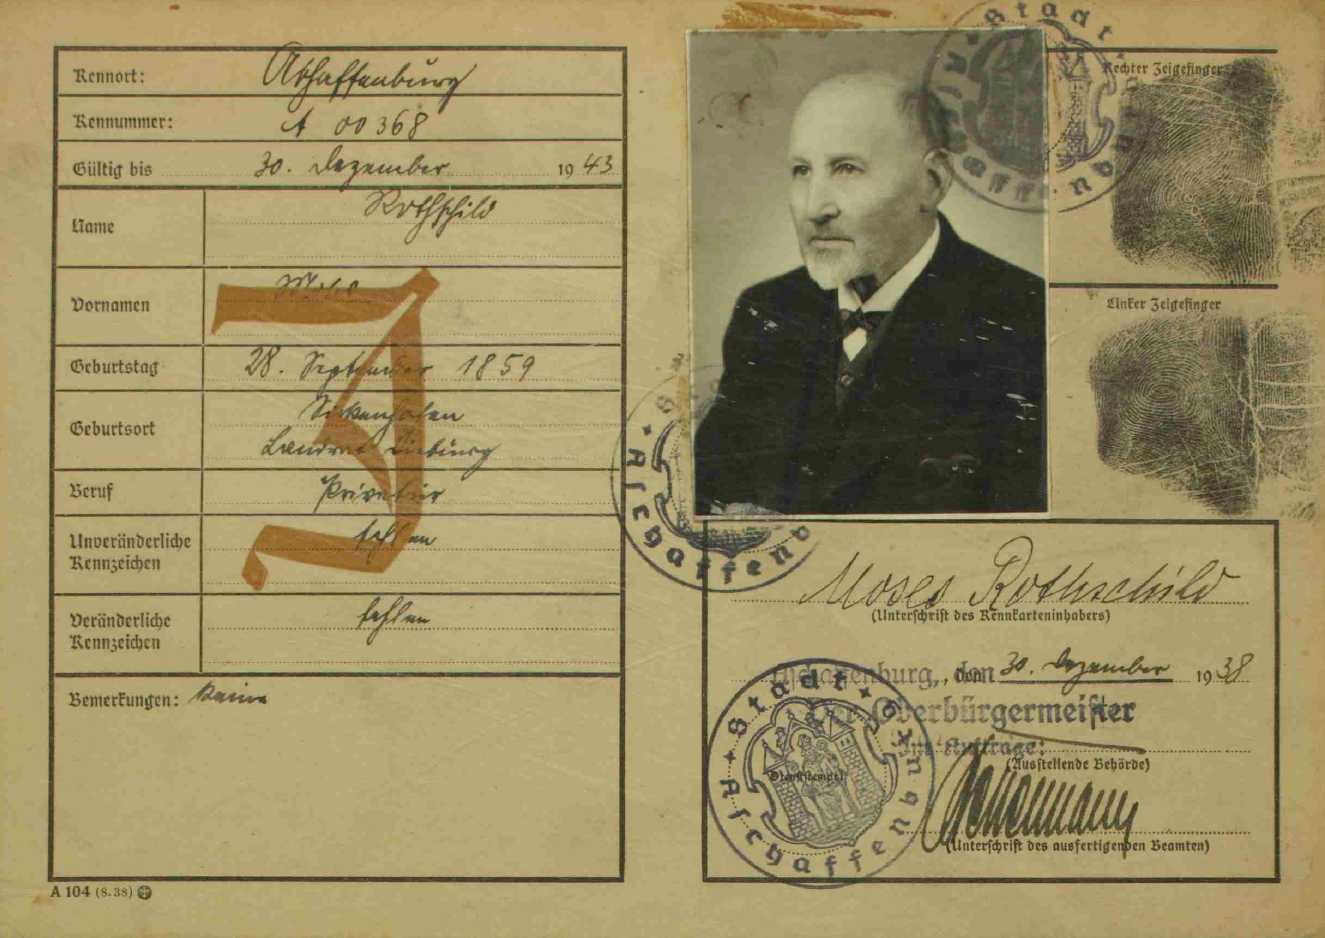 Kennort: Aschaffenburg
Kennummer: A 00368
Gültig bis 30. Dezember 1943
Name Rothschild
Vornamen
Geburtstag 28. September 1859
Geburtsort
Beruf
Unveränderliche fehlen
Kennzeichen
Veränderliche fehlen
Kennzeichen
Bemerkungen: keine
J
A 104 (8.38)
Stadt Aschaffenburg
Rechter Zeigefinger
Linker Zeigefinger
Stadt Aschaffenburg
Moses Rothschild
(Unterschrift des Kennkarteninhabers)
Aschaffenburg, den 30. Dezember 1938
Der Oberbürgermeister
Im Auftrage:
(Ausstellende Behörde)
Stadt Aschaffenburg
Dienststempel
(Unterschrift des ausfertigenden Beamten)